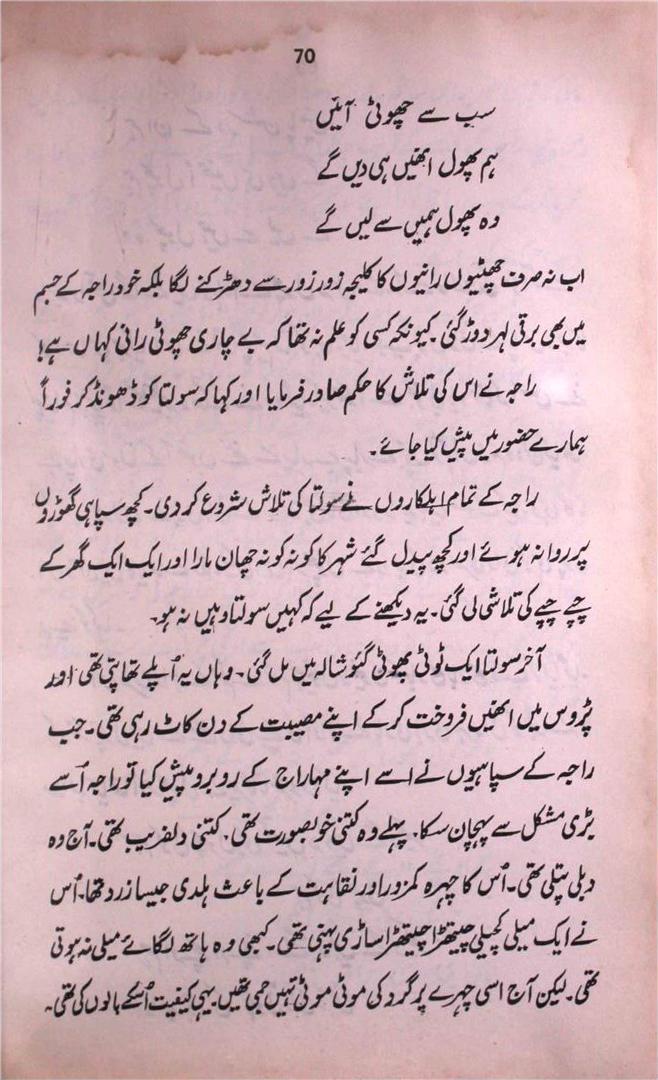 70
سب سے چھوٹی آئیں
ہم پھول انھیں ہی دیں گے
وہ پھول ہمیں سے لیں گے
اب نہ صرف چھئیوں رانیوں کا کلیجہ زور زور سے دھڑکنے لگا بلکہ خود راجہ کے جسم
میں بھی برقی لہر دوڑ گئی۔ کیونکہ کسی کو علم نہ تھا کہ بے چاری چھوٹی رانی کہاں ہے!
راجہ نے اس کی تلاش کا حکم صادر فرمایا اور کہا کہ سولتا کو ڈھونڈ کر فوراً
ہمارے حضور میں پیش کیا جائے۔
راجہ کے تمام اہلکاروں نے سولتا کی تلاش شروع کر دی۔ کچھ سپاہی گھوڑوں
پر روانہ ہوئے اور کچھ پیدل گئے شہر کا کونہ کونہ چھان مارا اور ایک ایک گھر کے
چپے چپے کی تلاشی لی گئی۔ یہ دیکھنے کے لیے کہ کہیں سولتا وہیں نہ ہو۔
آخر سولتا ایک ٹوٹی پھوٹی گئوشالہ میں مل گئی۔ وہاں یہ اُپلے تھاپتی تھی اور
پڑوس میں انھیں فروخت کر کے اپنے مصیبت کے دن کاٹ رہی تھی۔ جب
راجہ کے سپاہیوں نے اسے اپنے مہاراج کے روبرو پیش کیا تو راجہ اُسے
بڑی مشکل سے پہچان سکا۔ پہلے وہ کتنی خوبصورت تھی۔ کتنی دلفریب تھی۔ آج وہ
دبلی پتلی تھی۔ اُس کا چہرہ کمزور اور نقاہت کے باعث ہلدی جیسا زرد تھا۔ اُس
نے ایک میلی کچیلی چیتھڑا چیتھڑا ساڑی پہنی تھی۔ کبھی وہ ہاتھ لگائے میلی نہ ہوتی
تھی۔ لیکن آج اسی چہرے پر گرد کی موٹی موٹی تہیں جمی تھیں۔ یہی کیفیت اُسکے بالوں کی تھی۔